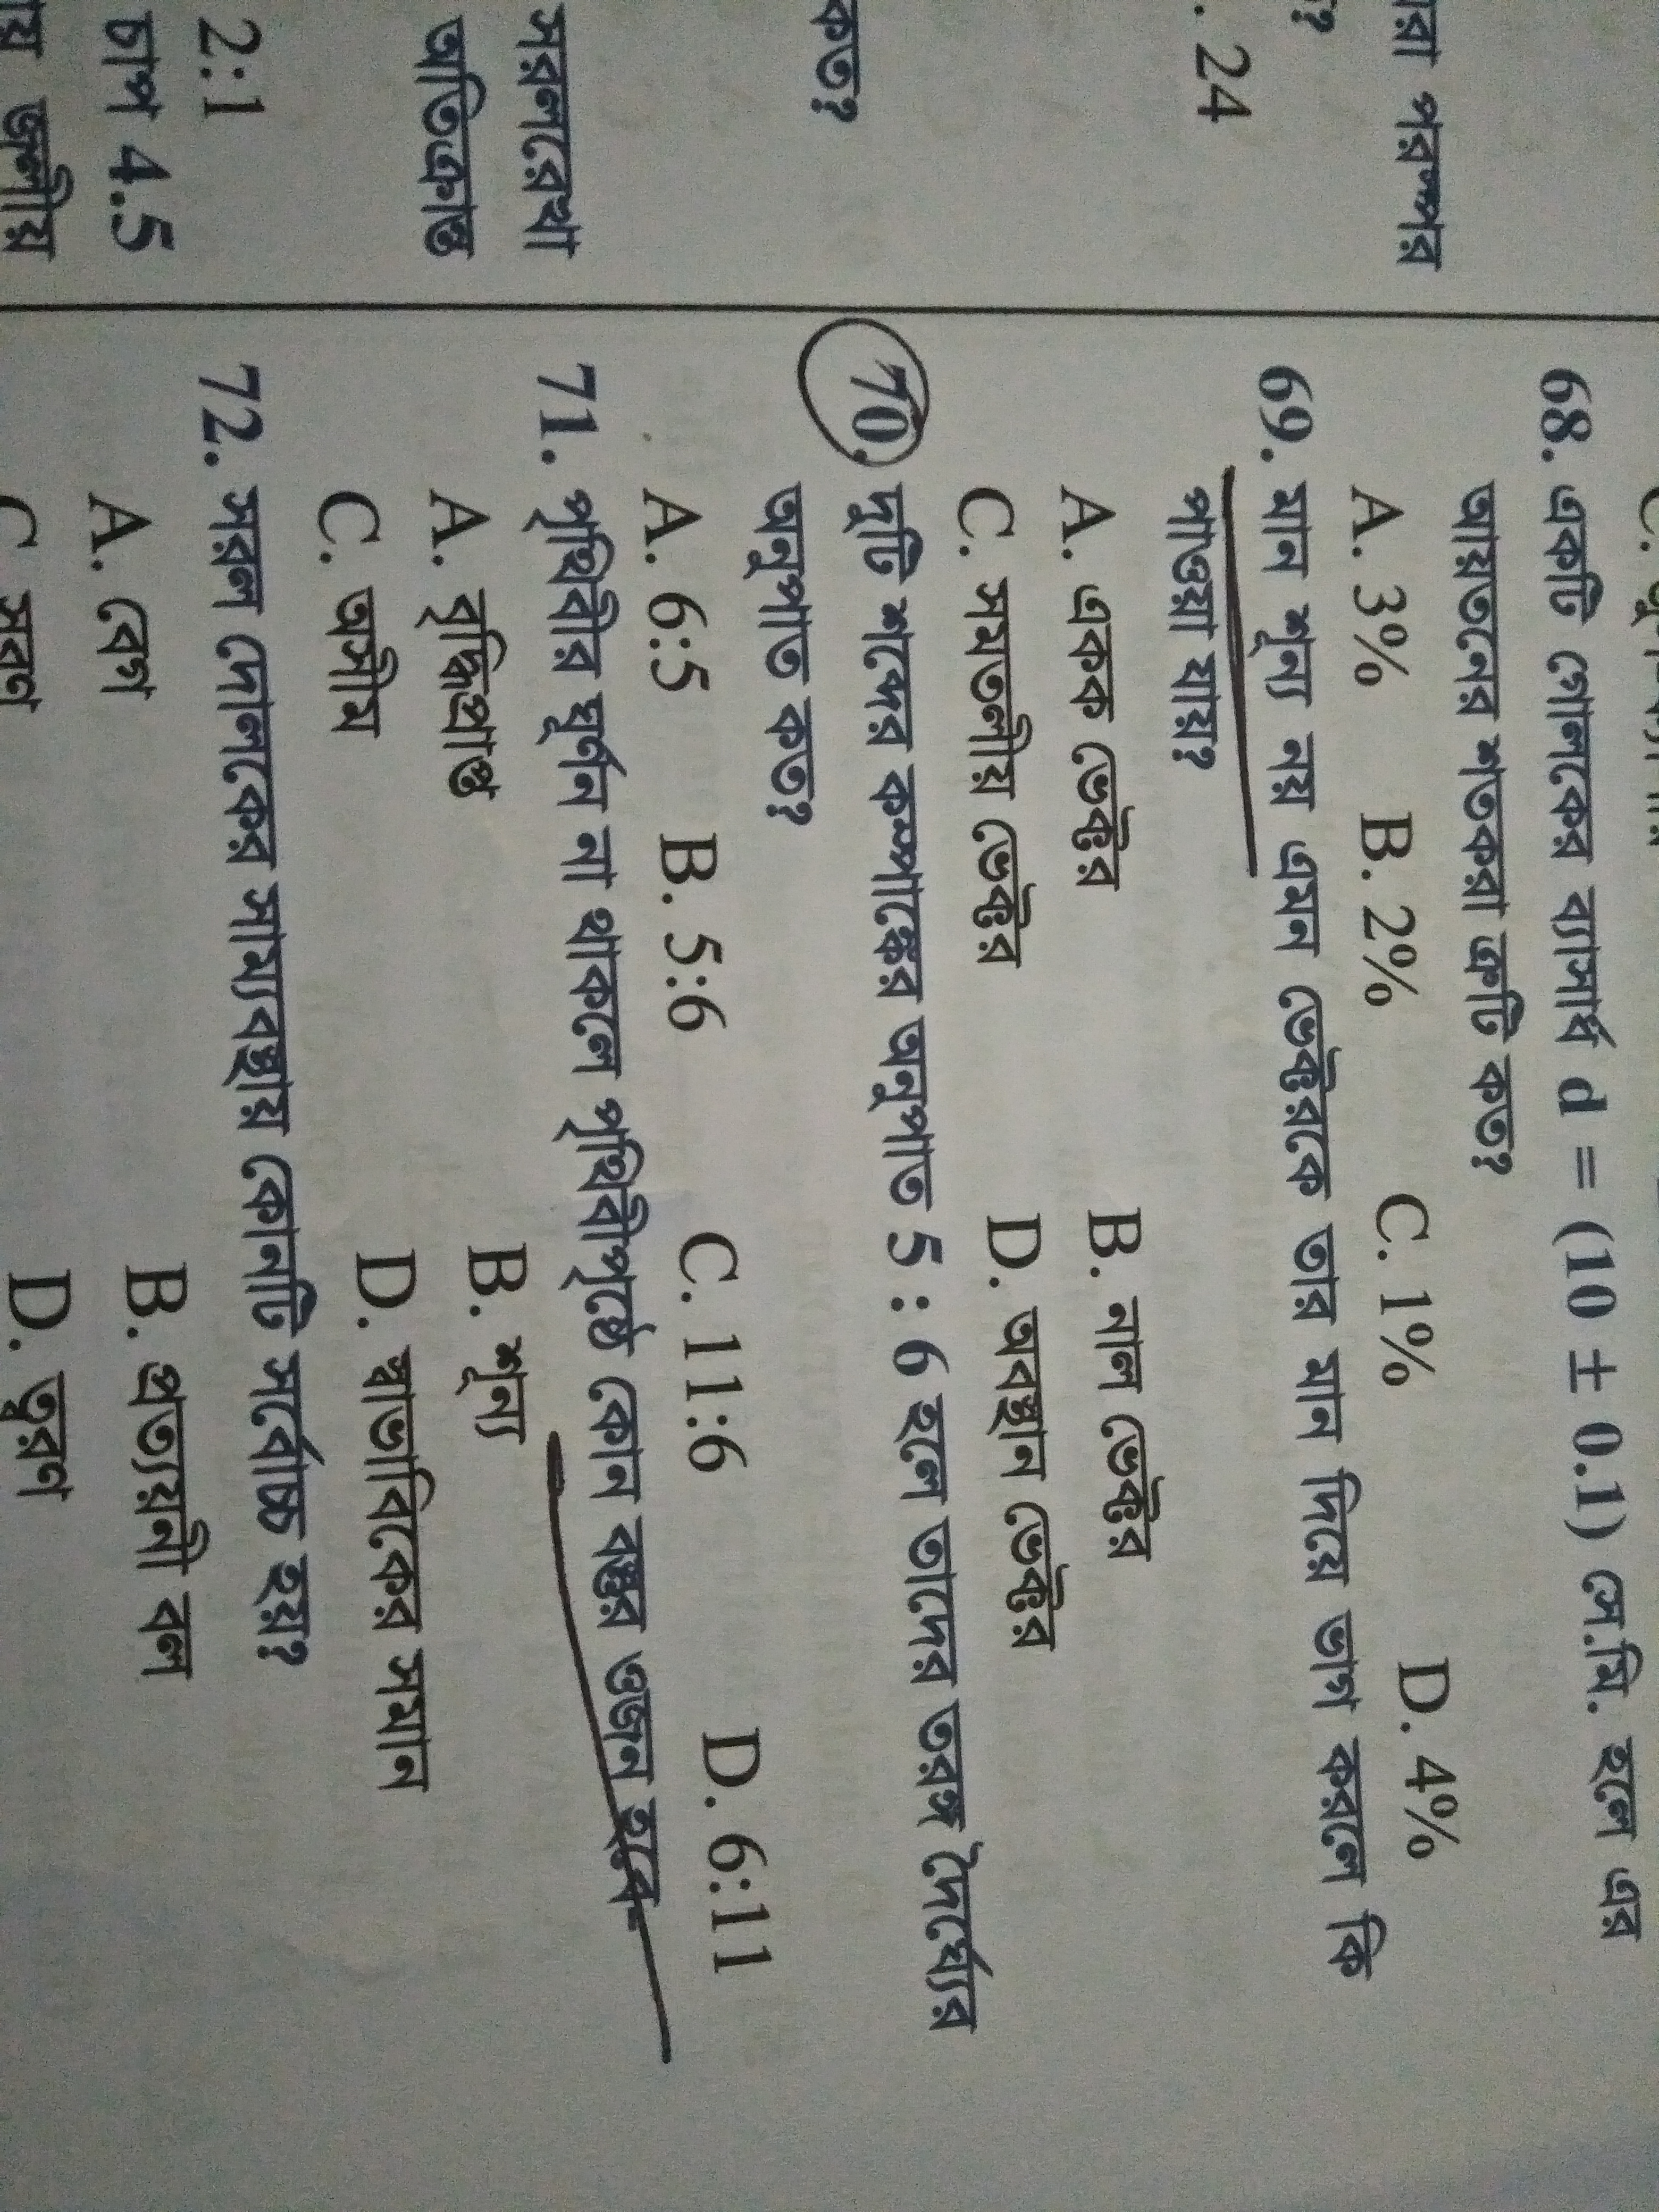 য়রা পরস্পর
ত?
. 24
কত?
সরলরেখা
অতিক্রান্ত
2:1
চাপ 4.5
জলীয়
68. একটি গোলকের ব্যাসার্ধ d = (10 ± 0.1) সে.মি. হলে এর
আয়তনের শতকরা ত্রুটি কত?
A. 3% B. 2% C. 1% D. 4%
69. মান শূন্য নয় এমন ভেক্টরকে তার মান দিয়ে ভাগ করলে কি
পাওয়া যায়?
A. একক ভেক্টর B. নাল ভেক্টর
C. সমতলীয় ভেক্টর D. অবস্থান ভেক্টর
70. দুটি শব্দের কম্পাঙ্কের অনুপাত 5 : 6 হলে তাদের তরঙ্গ দৈর্ঘ্যের
অনুপাত কত?
A. 6:5 B. 5:6 C. 11:6 D. 6:11
71. পৃথিবীর ঘূর্ণন না থাকলে পৃথিবীপৃষ্ঠে কোন বস্তুর ওজন হবে-
A. বৃদ্ধিপ্রাপ্ত B. শূন্য
C. অসীম D. স্বাভাবিকের সমান
72. সরল দোলকের সাম্যবস্থায় কোনটি সর্বোচ্চ হয়?
A. বেগ B. প্রত্যয়নী বল
C. সরণ D. ত্বরণ